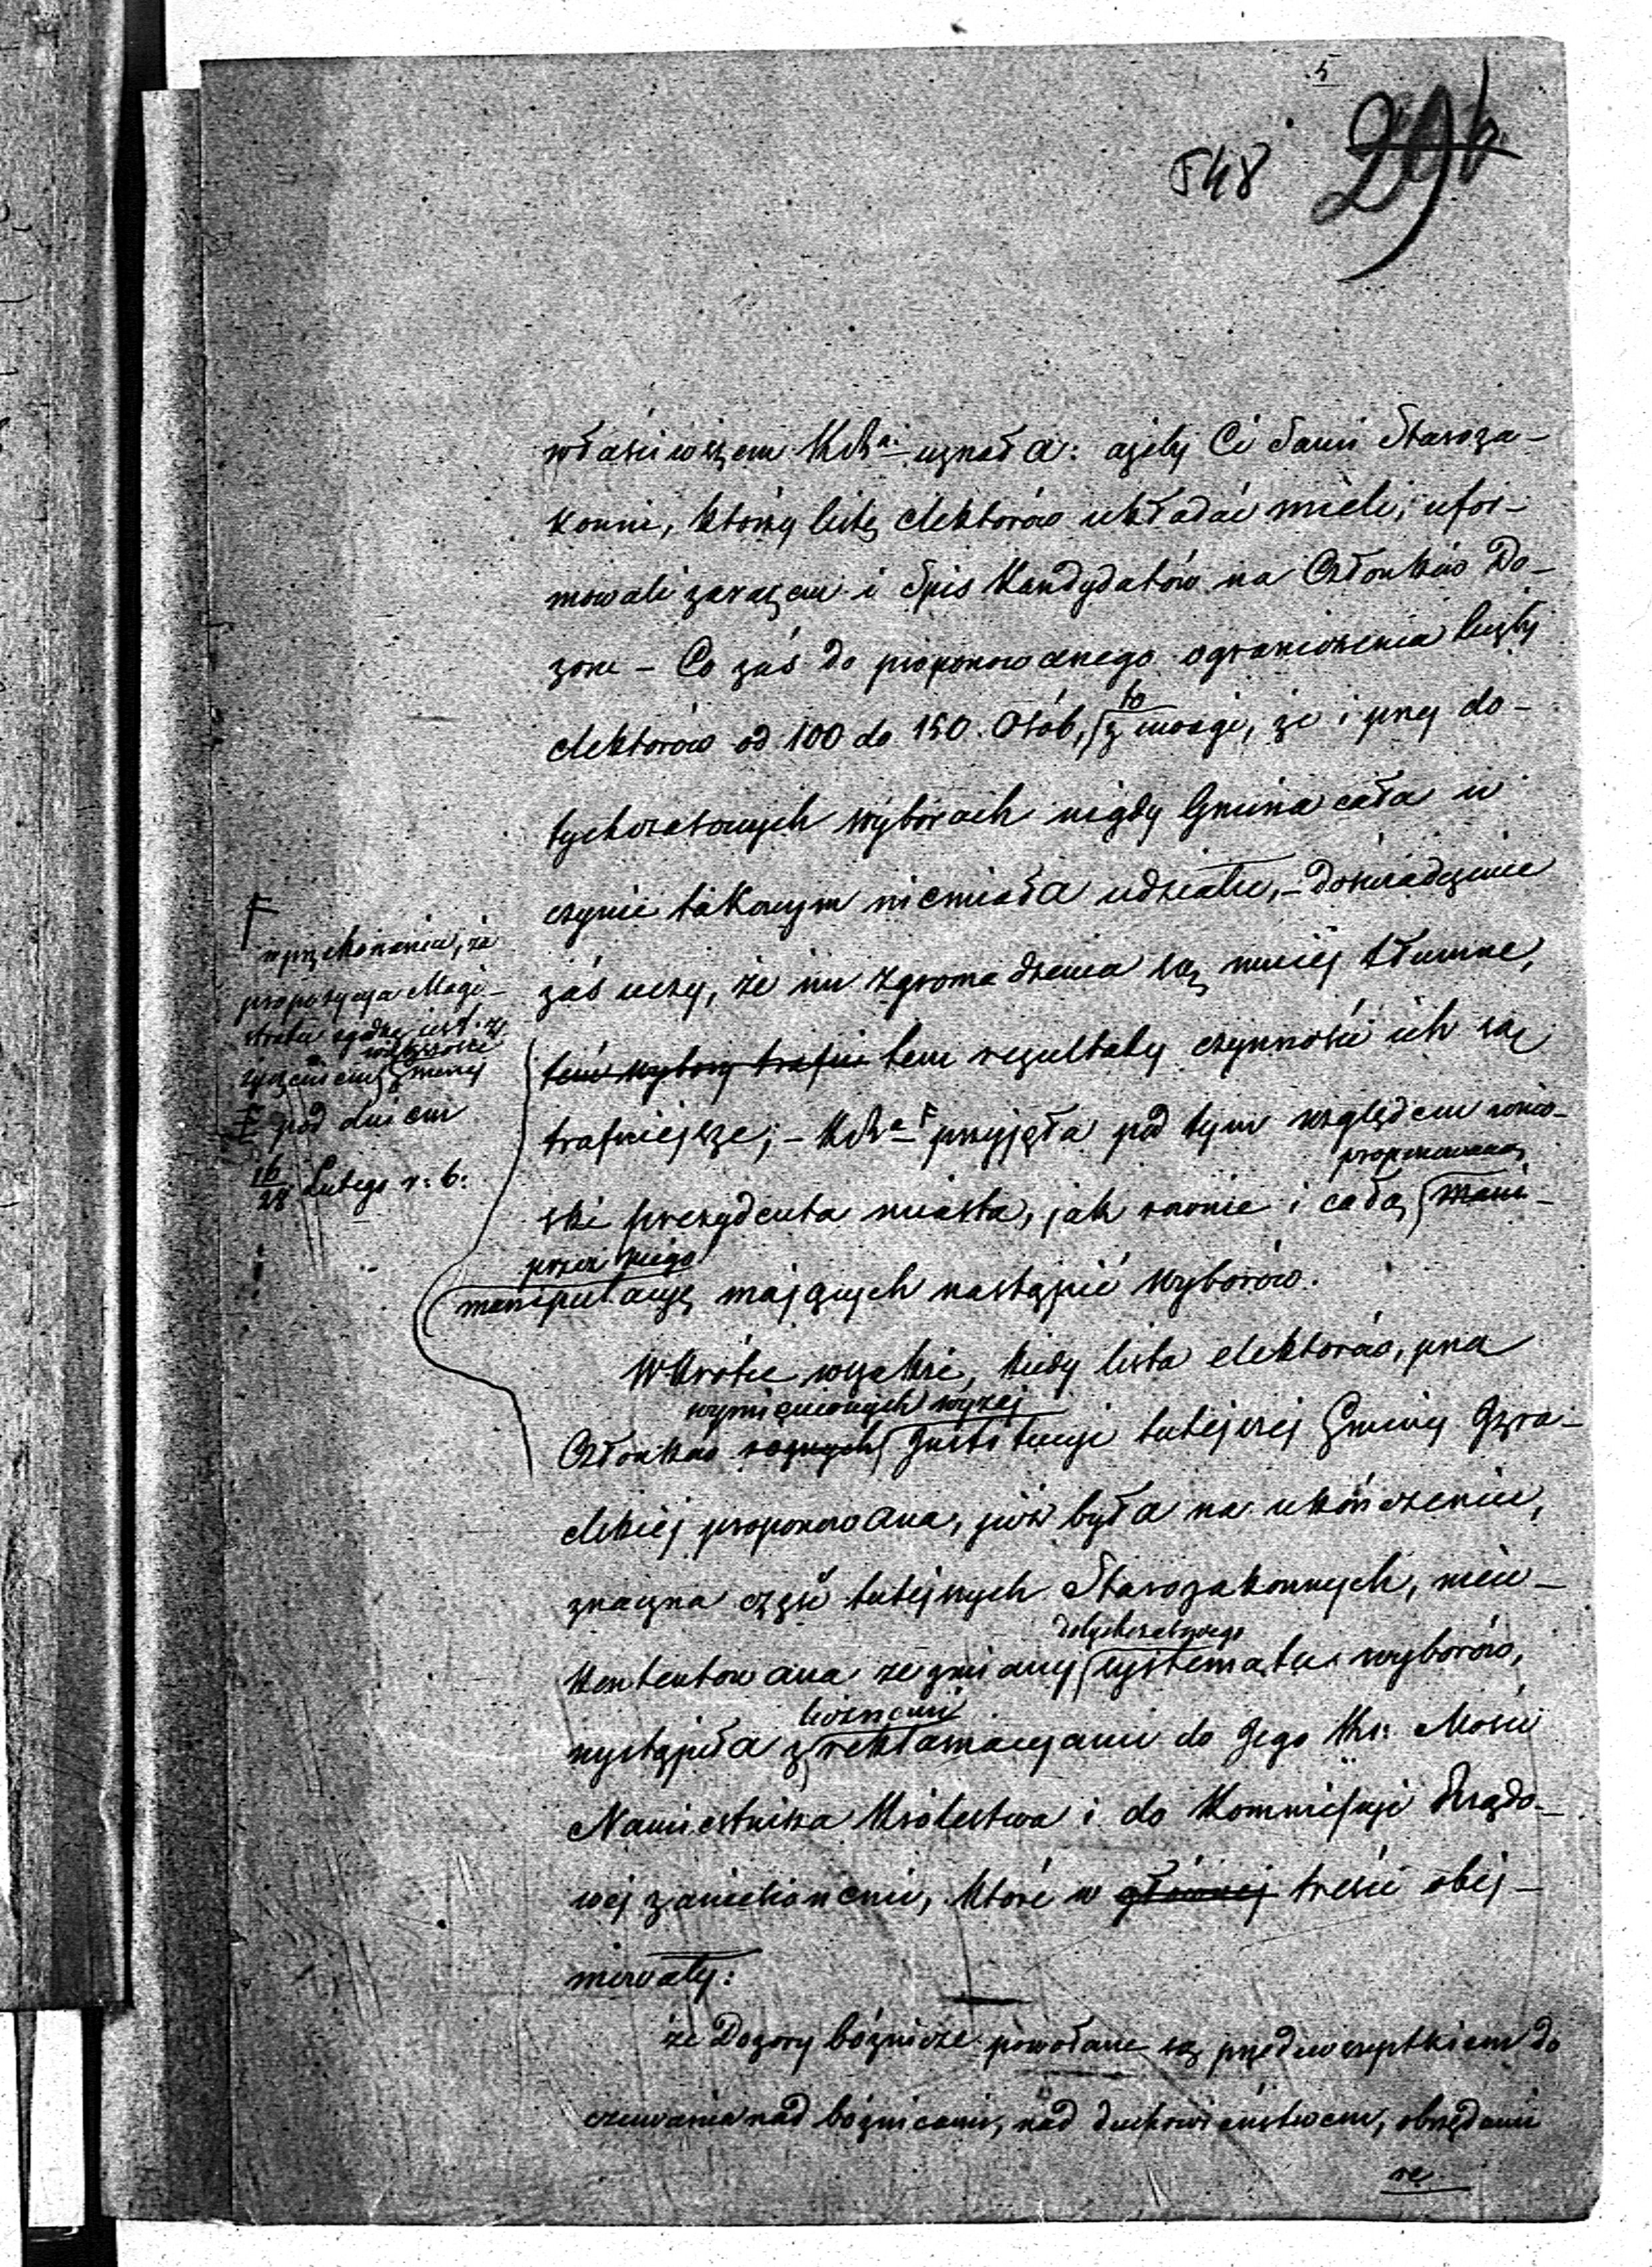 5
548 29b
właściwszem KRz.a uznała: ażeby Ci sami Staroza-
konni, którzy listę elektorów układać mieli, ufor-
mowali zarazem i Spis Kandydatów na Członków Do-
zoru – Co zaś do proponowanego ograniczenia liczby
to
elektorów od 100 do 150. Osób, z uwagi, że i przy do-
tychczasowych wyborach nigdy Gmina cała w
czynie takowym niemiała udziału, – doświadczenie
zaś uczy, że im zgromadzenia są mniej tłumne,
tem wybory trafnie tem rezultaty czynności ich są
trafniejsze; – KRz.a F przyjęła pod tym względem wnio-
proponowaną
ski prezydenta miasta, jak równie i całą mani-
przez niego
manipulacyę mających nastąpić wyborów.
F
w przekonaniu, że
propozycya Magi-
stratu zgodną jest z
większości
życzeniem Gminy
F pod dniem
16/28 Lutego r. b.
Wkrótce wszakże, kiedy lista elektorów, przez
wymienionych wyżej
Członków Instytucyi tutejszej Gminy Izra-
elskiej proponowana, już była na ukończeniu,
znaczna część tutejszych Starozakonnych, nieu-
dotychczasowego
kontentowana ze zmiany systematu wyborów,
licznemi
wystąpiła z reklamacyami do Jego Ks: Mości
Namiestnika Królestwa i do Kommissyi Rządo-
wej zaniesionemi, które w głównej treści obej-
mowały:
że Dozory bóźnicze powołane są przedewszystkiem do
czuwania nad bóźnicami, nad duchowieństwem, obrzędami